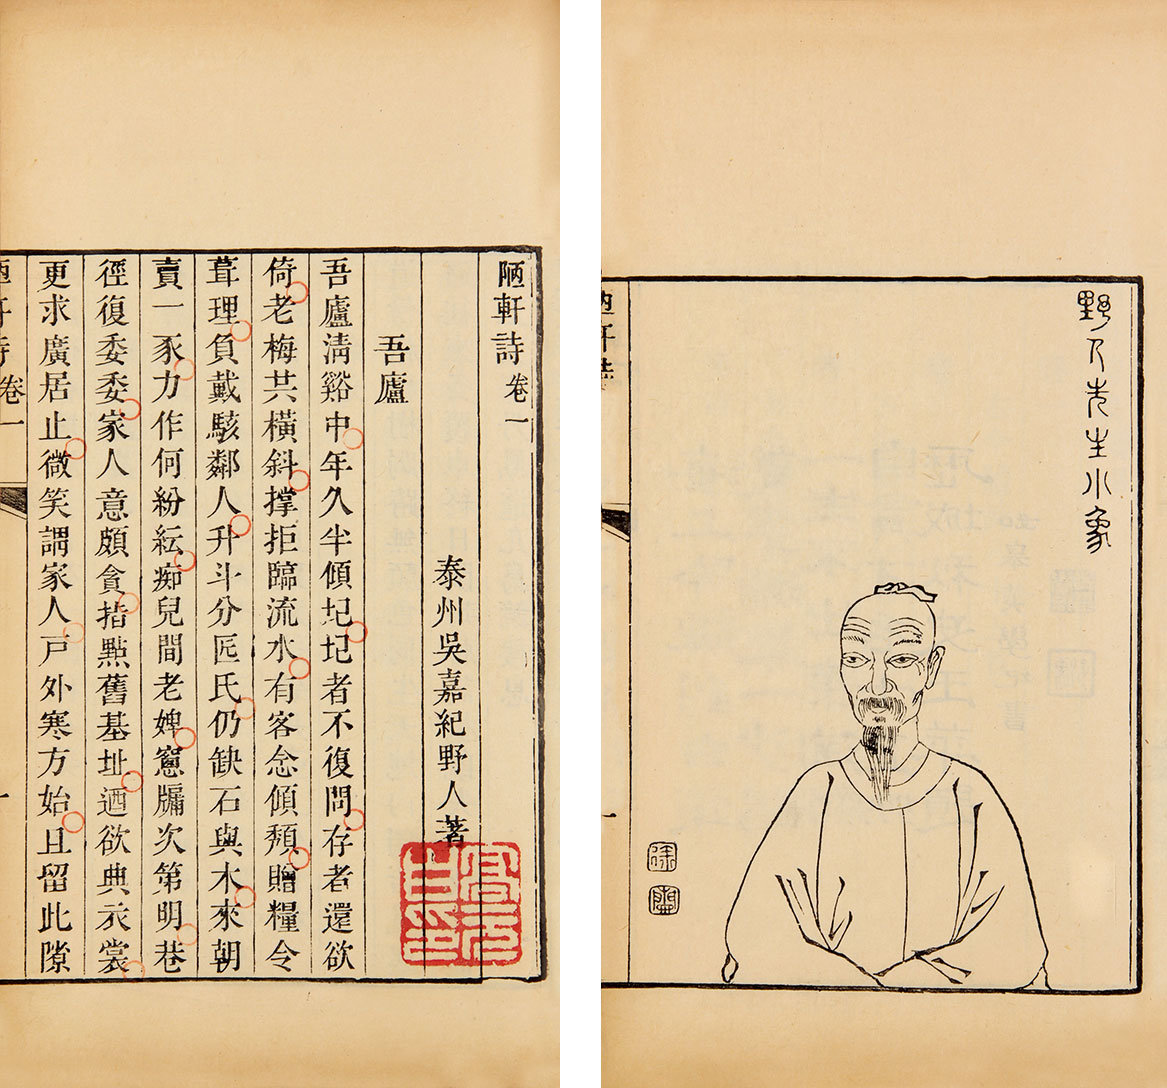 野人先生小象
陋軒詩
陋軒詩卷一
泰州吳嘉紀野人著
吾廬
吾廬清谿中年久半傾圮圮者不復問存者還欲
倚老梅共橫斜撐拒臨流水有客念傾頹贈糧令
葺理負戴駭鄰人升斗分匠氏仍缺石與木來朝
賣一豕力作何紛紜痴兒間老婢窻牖次第明巷
徑復委委家人意頗貪指點舊基址迺欲典衣裳
更求廣居止微笑謂家人戶外寒方始且留此隙
陋軒詩卷一